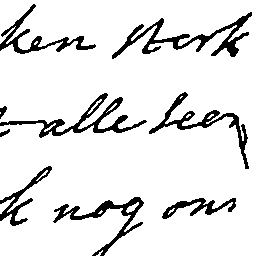 ken sterk
t alle seer
k nog ons